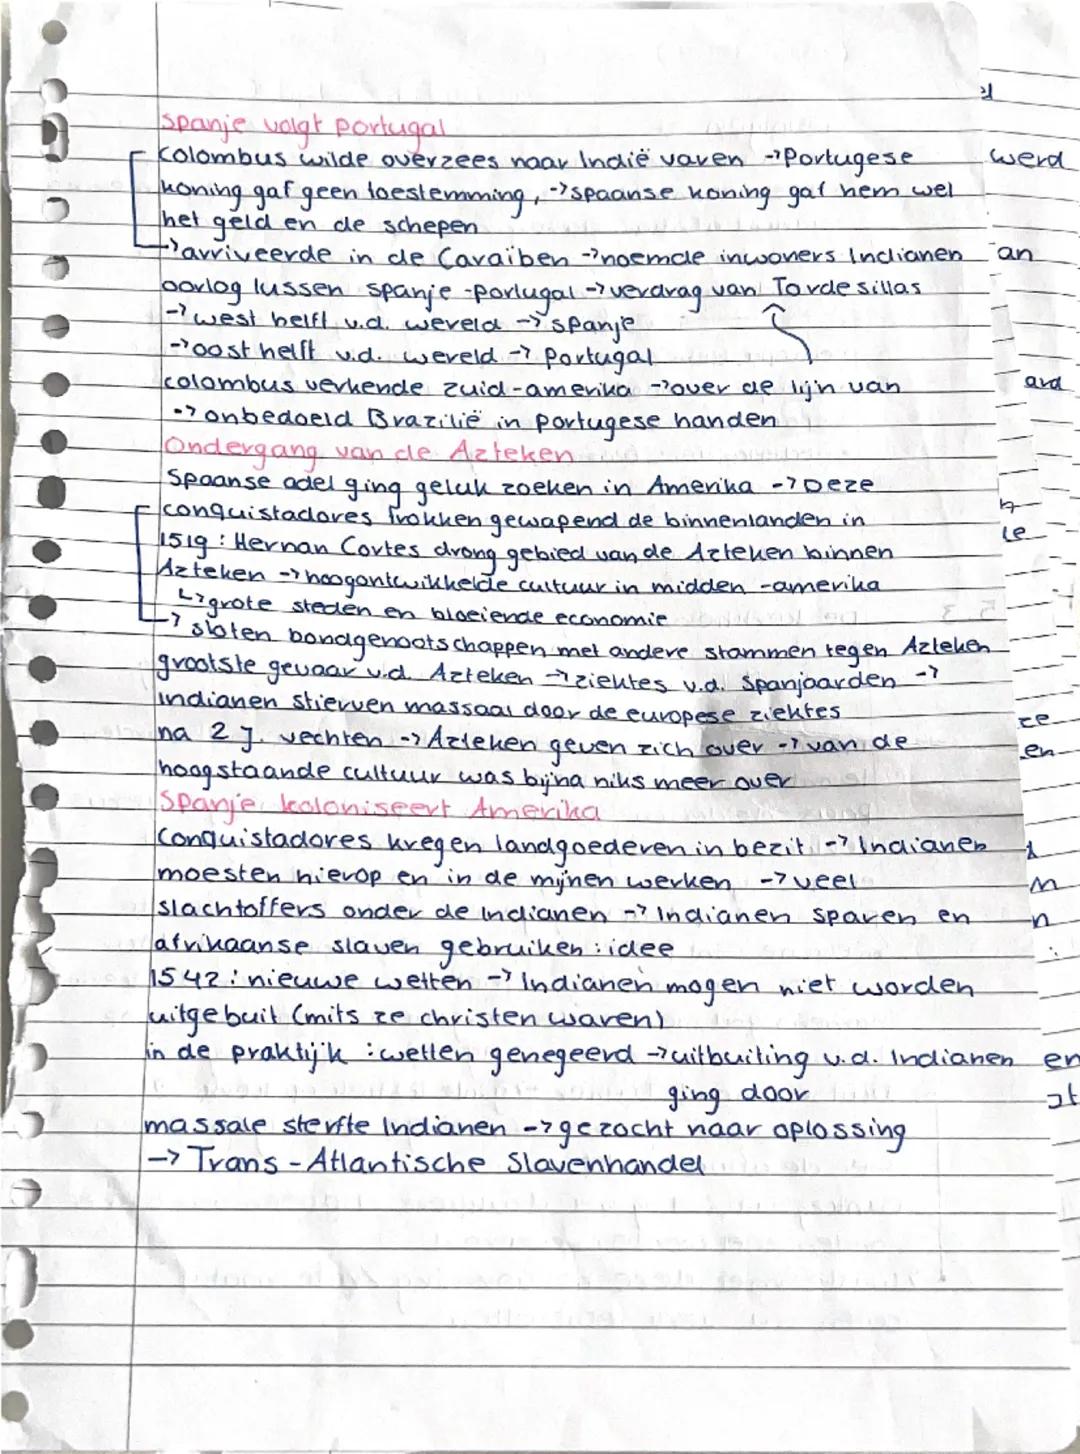 Spanje volgt Portugal
Colombus wilde overzees naar Indië varen → Portugese
koning gaf geen toestemming, → spaanse koning gaf hem wel
het geld en de schepen
→ arriveerde in de Caraïben → noemde inwoners Indianen
oorlog tussen spanje - portugal → verdrag van Tordesillas
→ west helft v.d. wereld → spanje
→ oost helft v.d. wereld → Portugal
colombus verkende zuid-amerika → over de lijn van
→ onbedoeld Brazilië in portugese handen
Ondergang van de Azteken
Spaanse adel ging geluk zoeken in Amerika → Deze
conquistadores trokken gewapend de binnenlanden in
1519: Hernan Cortes drong gebied van de Azteken binnen
Azteken → hoogontwikkelde cultuur in midden-amerika
↳ grote steden en bloeiende economie
→ sloten bondgenootschappen met andere stammen tegen Azteken
grootste gevaar v.d. Azteken → ziektes v.d. Spanjaarden →
indianen stierven massaal door de europese ziektes
na 2 j. vechten → Azteken geven zich over → van de
hoogstaande cultuur was bijna niks meer over
Spanje koloniseert Amerika
Conquistadores kregen landgoederen in bezit → Indianen
moesten hierop en in de mijnen werken → veel
slachtoffers onder de indianen → Indianen sparen en
afrikaanse slaven gebruiken : idee
1542 : nieuwe wetten → Indianen mogen niet worden
uitgebuit (mits ze christen waren)
in de praktijk : wetten genegeerd → uitbuiting v.d. Indianen
ging door
massale sterfte Indianen → gezocht naar oplossing
→ Trans-Atlantische Slavenhandel
werd
an
ard
le
te
en
n
en